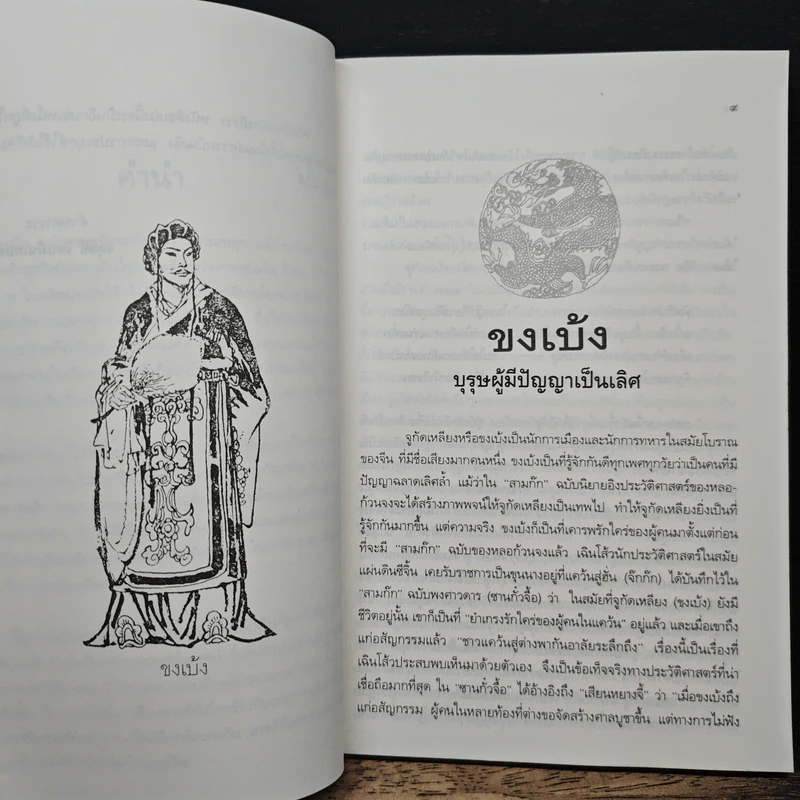 ขงเบ้ง
๙
ขงเบ้ง
บุรุษผู้มีปัญญาเป็นเลิศ
จูกัดเหลียงหรือขงเบ้งเป็นนักการเมืองและนักการทหารในสมัยโบราณ
ของจีน ที่มีชื่อเสียงมากคนหนึ่ง ขงเบ้งเป็นที่รู้จักกันดีทุกเพศทุกวัยว่าเป็นคนที่มี
ปัญญาฉลาดเลิศล้ำ แม้ว่าใน "สามก๊ก" ฉบับนิยายอิงประวัติศาสตร์ของหลอ-
ก้วนจงจะได้สร้างภาพพจน์ให้จูกัดเหลียงเป็นเทพไป ทำให้จูกัดเหลียงยิ่งเป็นที่
รู้จักกันมากขึ้น แต่ความจริง ขงเบ้งก็เป็นที่เคารพรักใคร่ของผู้คนมาตั้งแต่ก่อน
ที่จะมี "สามก๊ก" ฉบับของหลอก้วนจงแล้ว เฉินโส้วนักประวัติศาสตร์ในสมัย
แผ่นดินซีจิ้น เคยรับราชการเป็นขุนนางอยู่ที่แคว้นสู่ฮั่น (จ๊กก๊ก) ได้บันทึกไว้ใน
"สามก๊ก" ฉบับพงศาวดาร (ซานกั๋วจื้อ) ว่า ในสมัยที่จูกัดเหลียง (ขงเบ้ง) ยังมี
ชีวิตอยู่นั้น เขาก็เป็นที่ "ยำเกรงรักใคร่ของผู้คนในแคว้น" อยู่แล้ว และเมื่อเขาถึง
แก่อสัญกรรมแล้ว "ชาวแคว้นสู่ต่างพากันอาลัยระลึกถึง" เรื่องนี้เป็นเรื่องที่
เฉินโส้วประสบพบเห็นมาด้วยตัวเอง จึงเป็นข้อเท็จจริงทางประวัติศาสตร์ที่น่า
เชื่อถือมากที่สุด ใน "ซานกั๋วจื้อ" ได้อ้างอิงถึง "เสียนหยางจี้" ว่า "เมื่อขงเบ้งถึง
แก่อสัญกรรม ผู้คนในหลายท้องที่ต่างขอจัดสร้างศาลบูชาขึ้น แต่ทางการไม่ฟัง